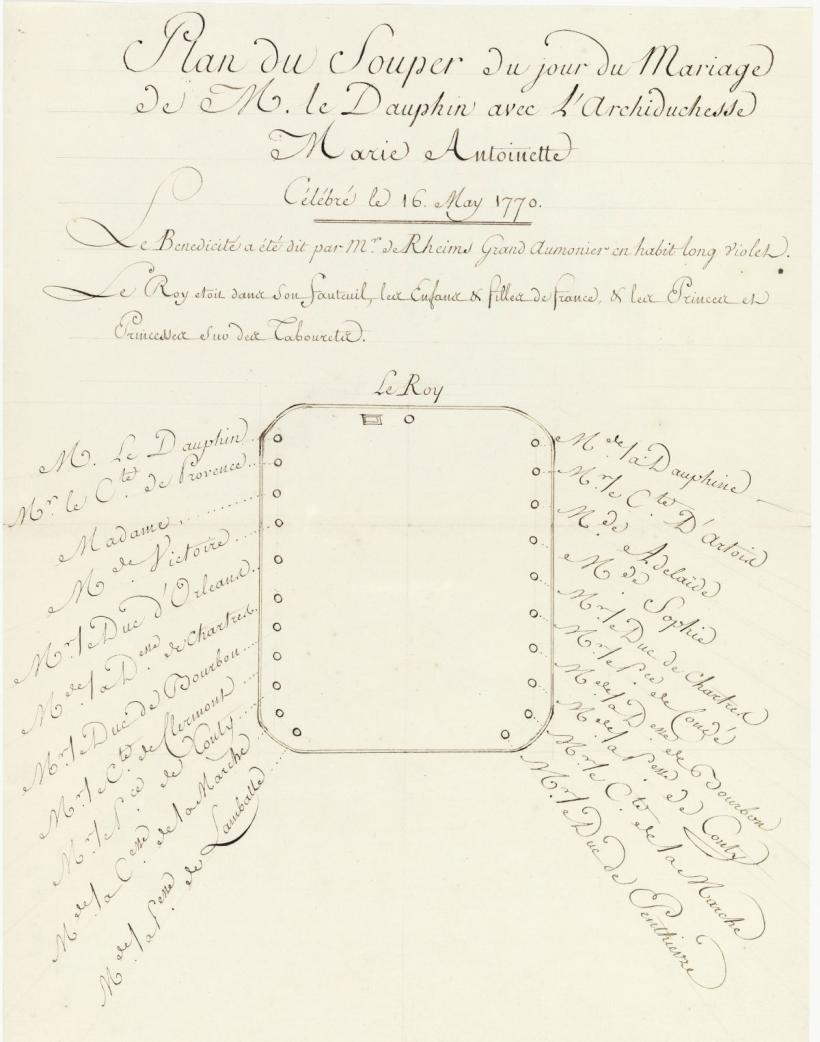 Plan du Souper du jour du Mariage
de M. le Dauphin avec L'Archiduchesse
Marie Antoinette
Célébré le 16. May 1770.
Le Benedicité a été dit par Mr. de Rheims Grand Aumonier en habit long violet.
Le Roy etoit dans son fauteuil, les Enfans & filles de france, & les Princes et
Princesses sur des Tabourets.
Le Roy
M. Le Dauphin
Mr. le Cte. de Provence
Madame
M de Victoire
Mr. le Duc d'Orleans
Mde. la Desse. de Chartres
Mr. le Duc de Bourbon
Mr. le Cte. de Clermont
Mr. le Pce. de Conty
Mde. la Cesse. de la Marche
Mde. la Pesse. de Lamballe
Mde. la Dauphine
Mr. le Cte. D'Artois
M. de Adelaïde
M. de Sophie
Mr. le Duc de Chartres
Mr. le Pce. de Condé
Mde. la Desse. de Bourbon
Mde. la Pesse. de Conty
Mr. le Cte. de la Marche.
Mr. le Duc de Penthievre